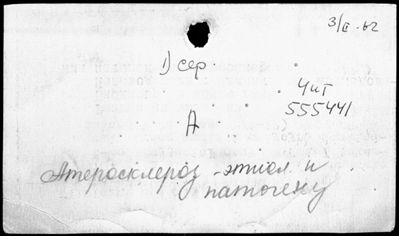 3/II-62
1) сер.
Чит
555441
А
Атеросклероз - этиол. и
патогену